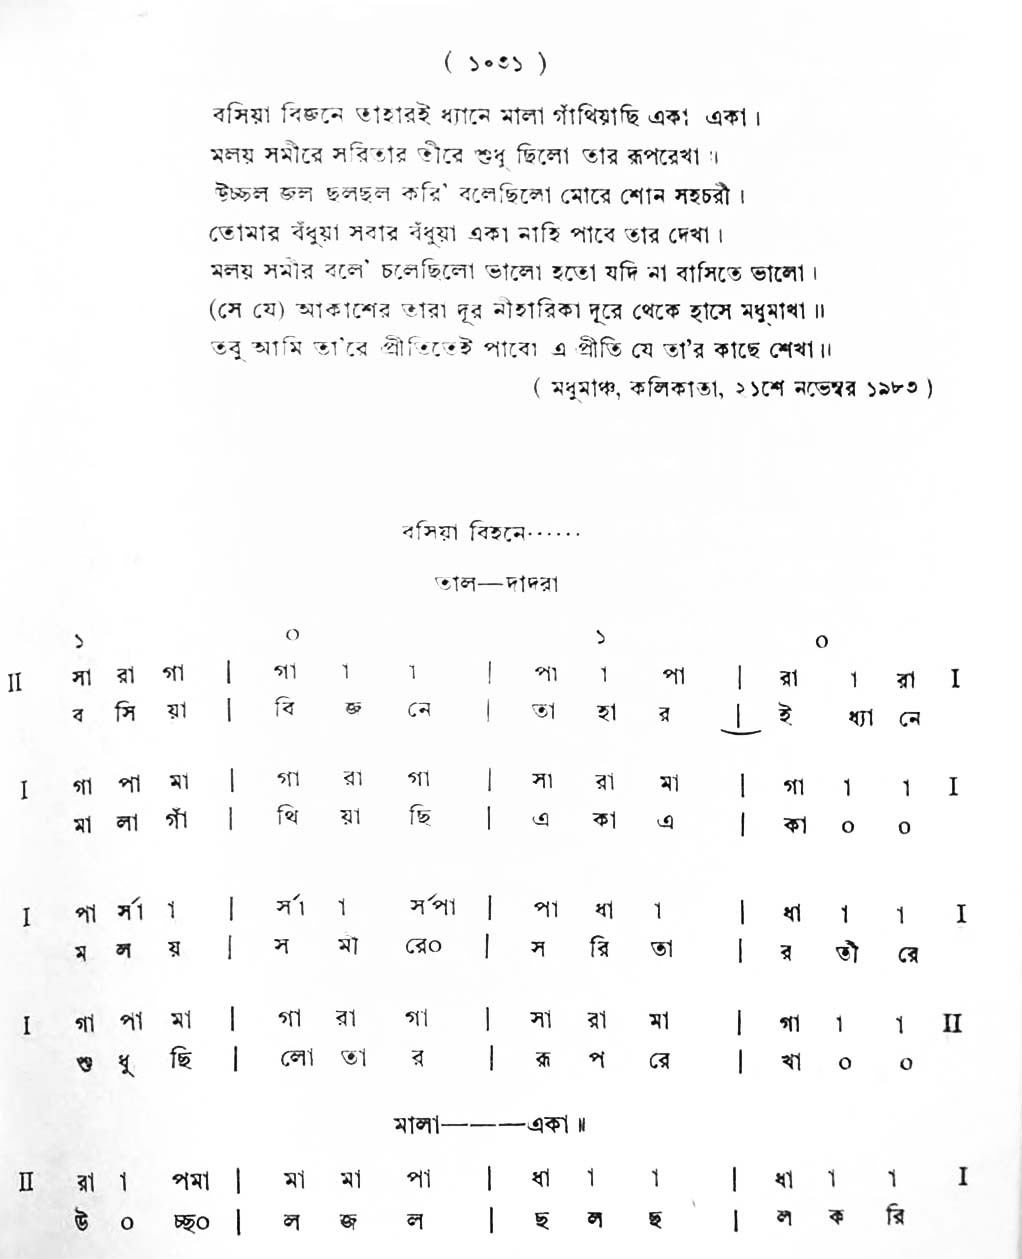 ( ১০৩১ )
বসিয়া বিজনে তাহারই ধ্যানে মালা গাঁথিয়াছি একা একা ।
মলয় সমীরে সরিতার তীরে শুধু ছিলো তার রূপরেখা ।
উচ্ছল জল ছলছল করি' বলেছিলো মোরে শোন সহচরী ।
তোমার বঁধুয়া সবার বঁধুয়া একা নাহি পাবে তার দেখা ।
মলয় সমীর বলে' চলেছিলো ভালো হতো যদি না বাসিতে ভালো ।
(সে যে) আকাশের তারা দূর নীহারিকা দূরে থেকে হাসে মধুমাখা ॥
তবু আমি তা'রে প্রীতিতেই পাবো এ প্রীতি যে তা'র কাছে শেখা ॥
( মধুমাঞ্চ, কলিকাতা, ২১শে নভেম্বর ১৯৮৩ )
বসিয়া বিহনে······
তাল—দাদরা
১ ০ ১ ০
II সা রা গা | গা া া | পা া পা | রা া রা I
ব সি য়া | বি জ নে | তা হা র | ই ধ্যা নে
I গা পা মা | গা রা গা | সা রা মা | গা া া I
মা লা গাঁ | থি য়া ছি | এ কা এ | কা ০ ০
I পা র্সা া | র্সা া র্সপা | পা ধা া | ধা া া I
ম ল য় | স মী রে০ | স রি তা | র তী রে
I গা পা মা | গা রা গা | সা রা মা | গা া া II
শু ধু ছি | লো তা র | রূ প রে | খা ০ ০
মালা———একা ॥
II রা া পমা | মা মা পা | ধা া া | ধা া া I
উ ০ চ্ছ০ | ল জ ল | ছ ল ছ | ল ক রি